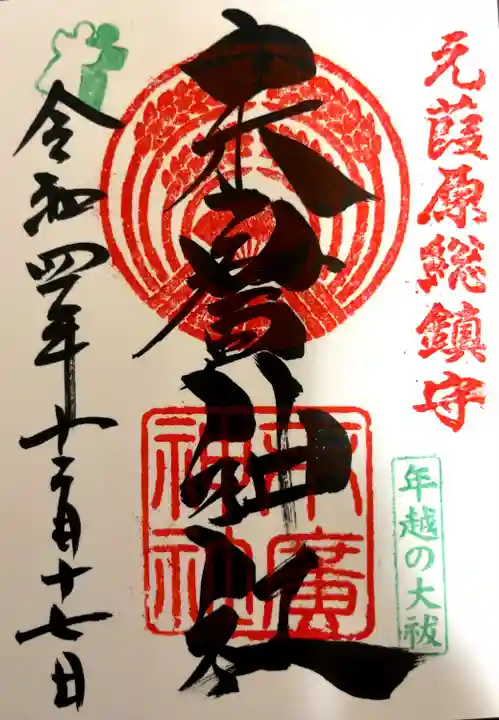 元葭原総鎮守
年越の大祓
末廣神社
末廣
神社
令和四年十二月十七日